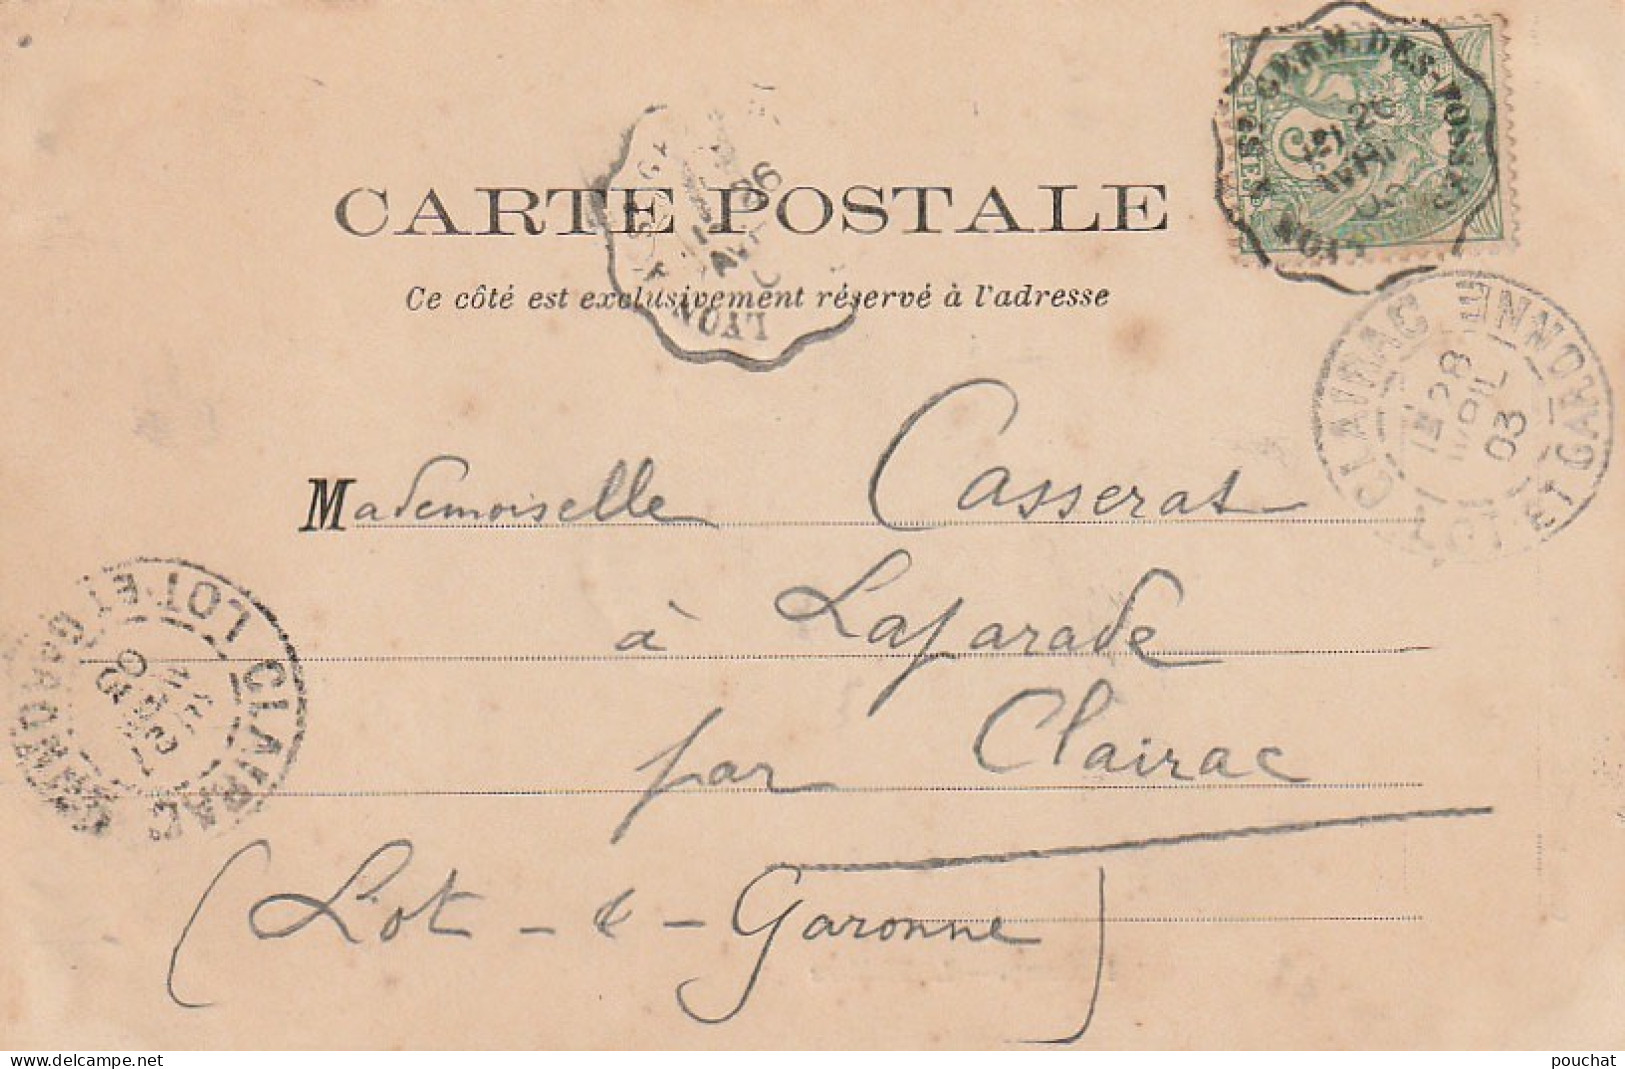 CARTE POSTALE
Ce côté est exclusivement réservé à l'adresse
LYON
26
GERM. DES-FOSSÉS
26
LYON
5
CLAIRAC
28
AVRIL
03
LOT ET GARONNE
Mademoiselle Casserat
à Laparade
par Clairac
(Lot-&-Garonne)
CLAIRAC
LOT-ET-GARONNE
delcampe.net
pouchat